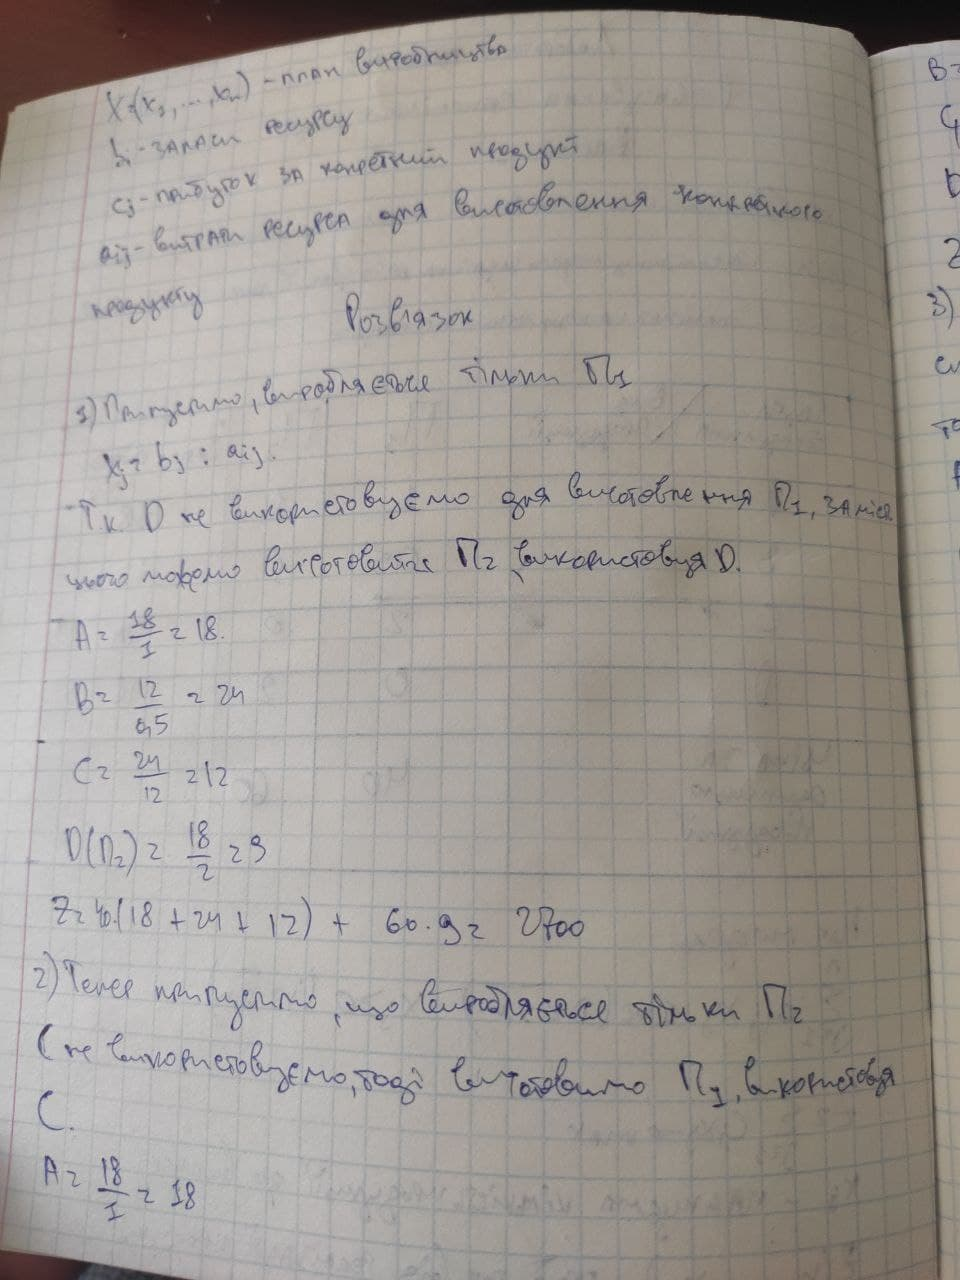 X=(x₁,...,xₙ) - план виробництва
bᵢ - запаси ресурсу
cⱼ - прибуток за конкретний продукт
aᵢⱼ - витрати ресурса для виготовлення конкретного
продукту
Розв'язок
1) Припустимо, виробляється тільки П₁
xⱼ = bⱼ : aᵢⱼ.
Тк D не використовуємо для виготовлення П₁, замість
цього можемо виготовити П₂ використовуя D.
A = 18/1 = 18.
B = 12/0,5 = 24
C = 24/12 = 12
D(П₂) = 18/2 = 9
Z = 40·(18 + 24 + 12) + 60·9 = 2700
2) Тепер припустимо, що виробляється тільки П₂
С не використовуємо, тоді виготовимо П₁, використовуя
С.
A = 18/1 = 18
B=
Z
3)